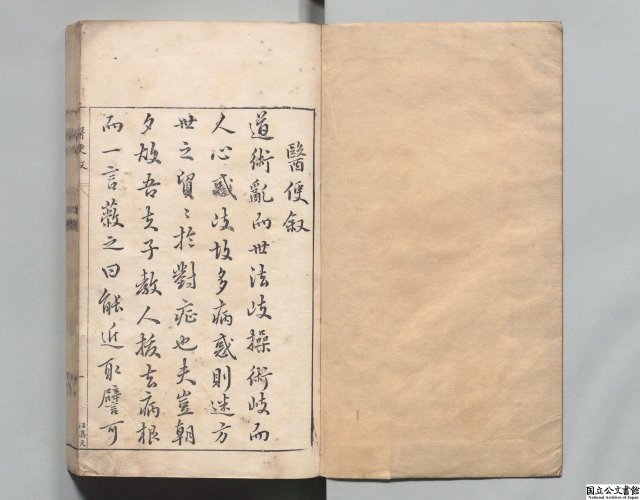 醫便叙
道術亂而世法歧操術歧而
人心惑歧故多病惑則迷方
世之貿〻於對症也夫豈朝
夕故吾夫子教人拔去病根
而一言蔽之曰能近取譬可
醫便叙
一
国立公文書館
National Archives of Japan